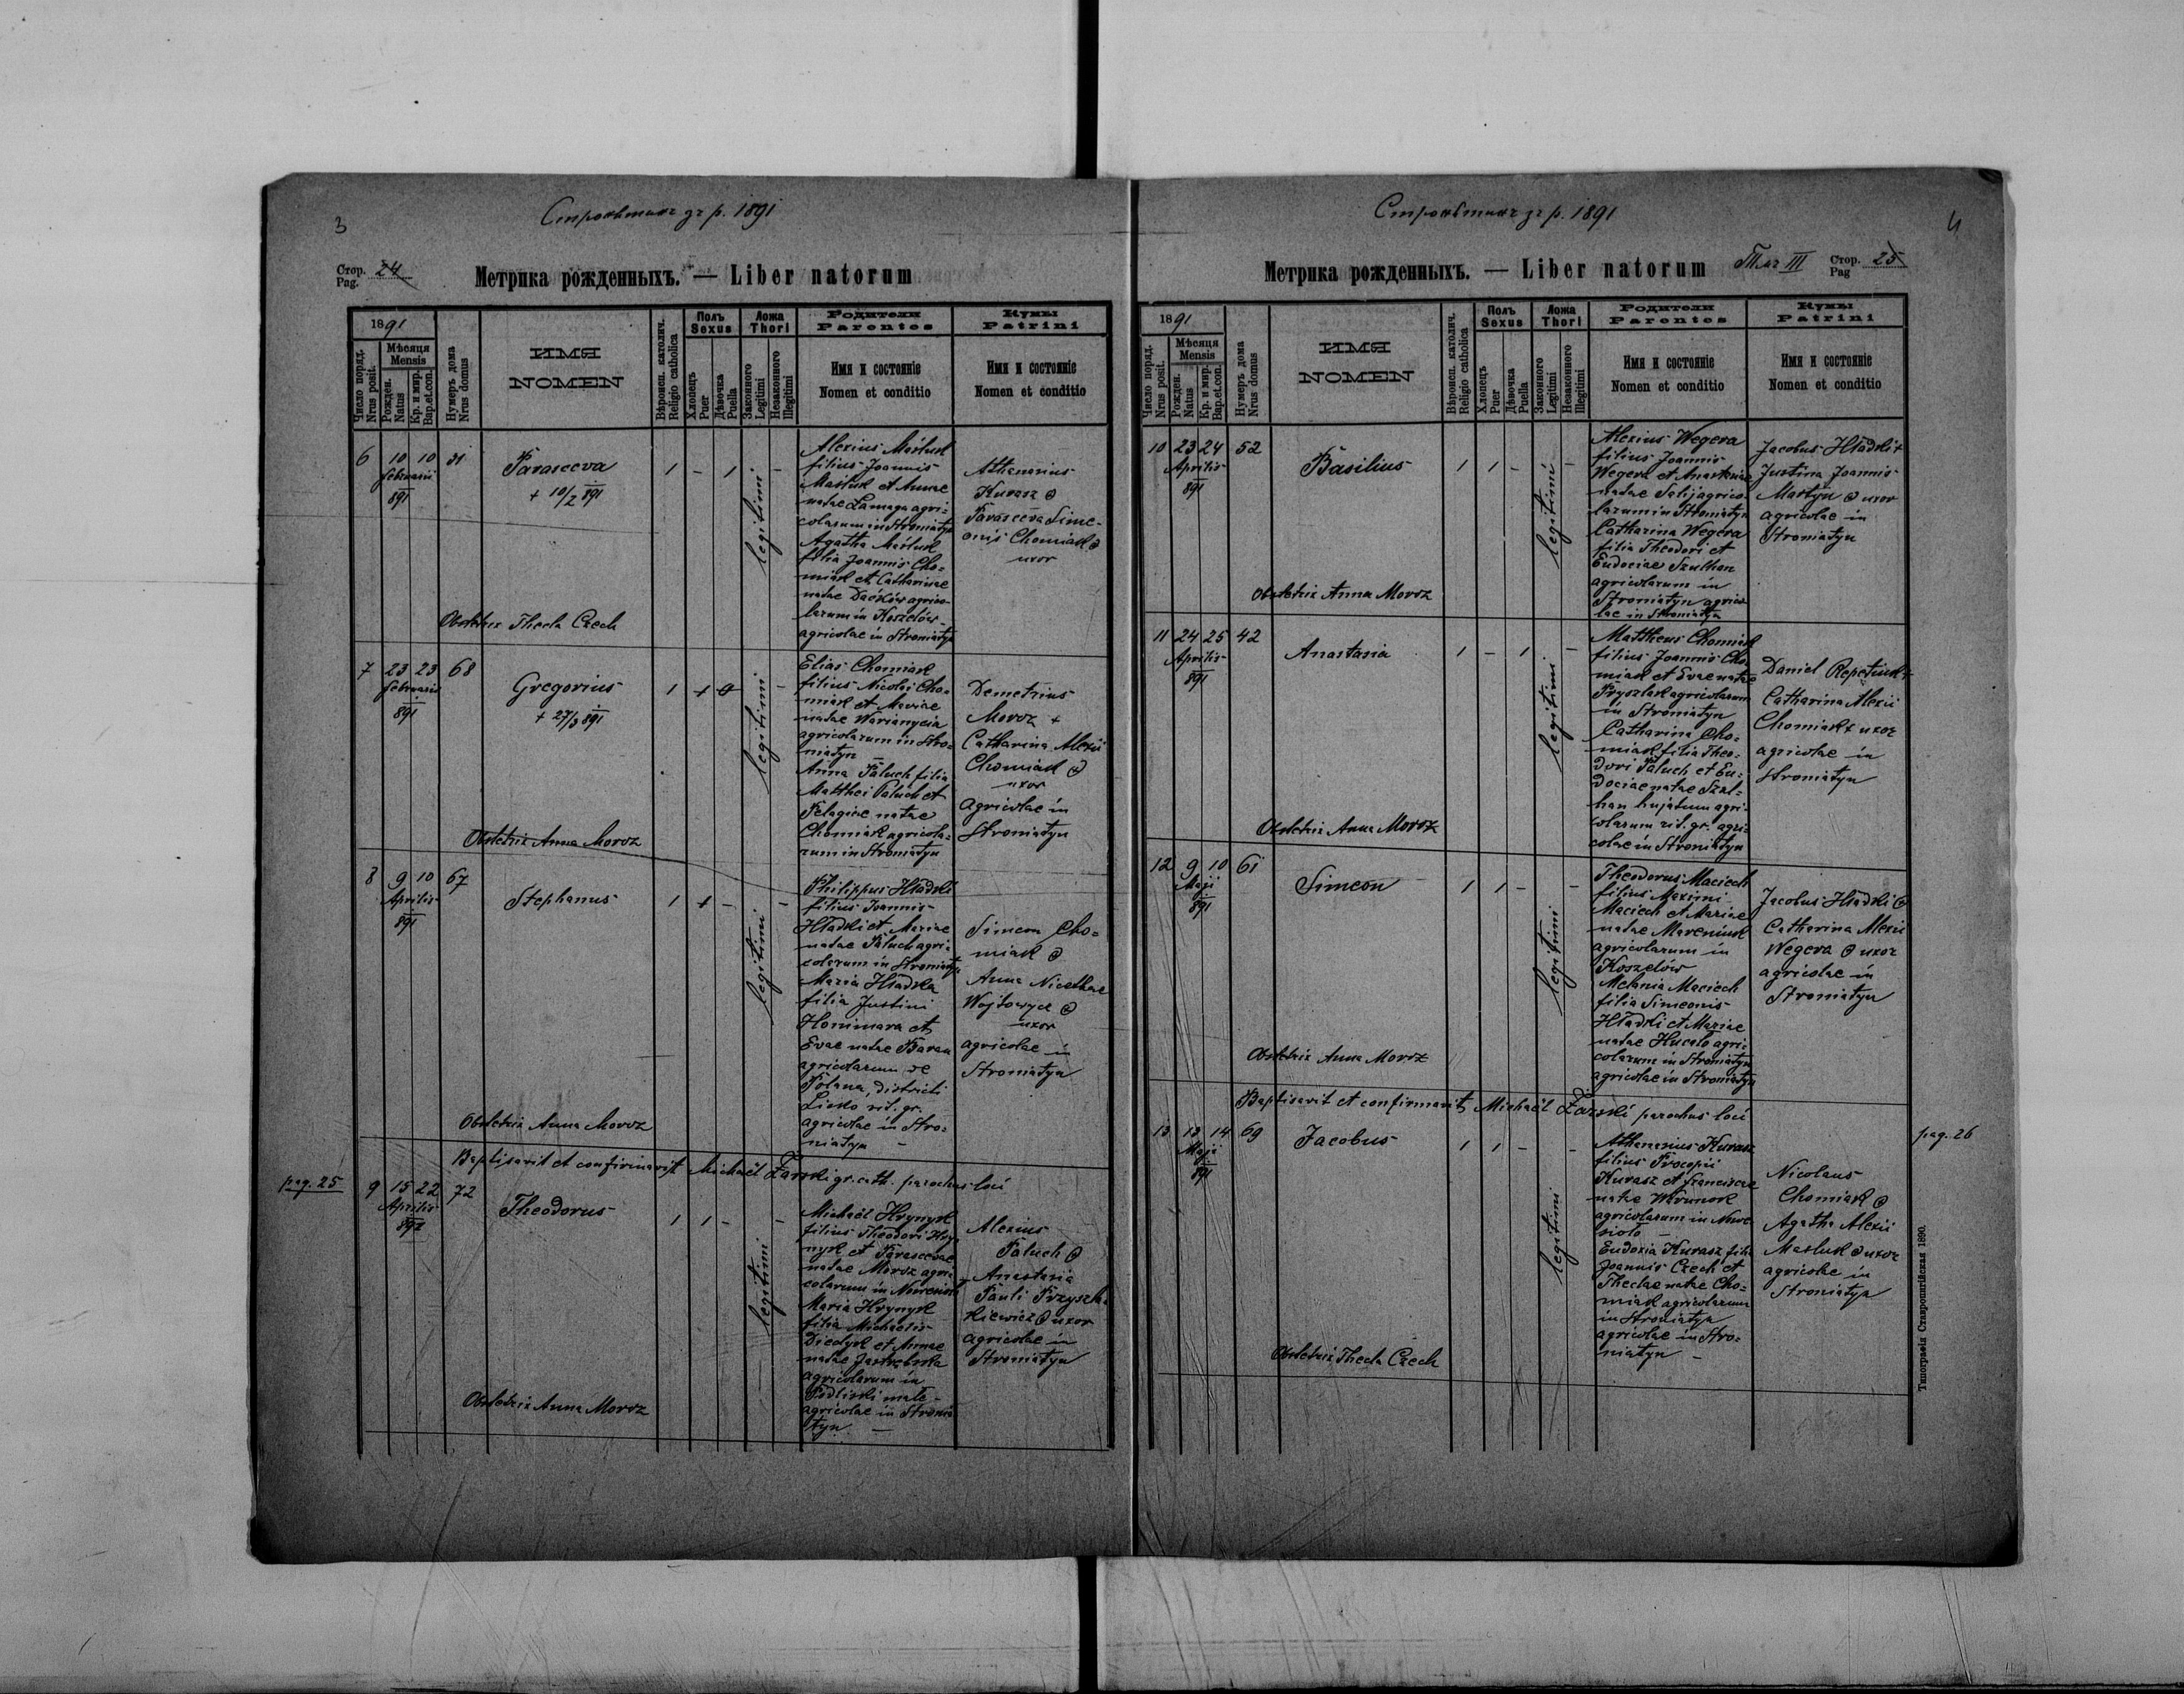 3
Строѣтинъ за р. 1891
Стор.
Pag. 24
Метрика рожденныхъ. — Liber natorum
1891
Число поряд.
Nrus posit.
Мѣсяця
Mensis
Рожден.
Natus
Кр. и мир.
Bap.et.con.
Нумеръ дома
Nrus domus
ИМЯ
NOMEN
Вѣроисп. католич.
Religio catholica
Полъ
Sexus
Хлопецъ
Puer
Дѣвочка
Puella
Ложа
Thori
Законного
Legitimi
Незаконного
Illegitimi
Родители
Parentes
Имя и состояніе
Nomen et conditio
Кумы
Patrini
Имя и состояніе
Nomen et conditio
6 10 10 31
Februarii
891
Parasceva
+ 10/2 891
1 - 1 -
legitimi
Alexius Maśluk
filius Joannis
Maśluk et Annae
natae Łamaga agri=
colarum in Stroniatyn
Agatha Maśluk
filia Joannis Cho=
miak et Catharinae
natae Daćków agrico-
larum in Koszelów
agricolae in Stroniatyn
Athanasius
Kurasz
Parasceva Sime-
onis Chomiak
uxor
Obstetrix Thecla Czech
7 23 23 68
Februarii
891
Gregorius
+ 27/3 891
1
legitimi
Elias Chomiak
filius Nicolai Cho=
miak et Mariae
natae Warianycia
agricolarum in Stro=
niatyn
Anna Paluch filia
Matthei Paluch et
Pelagiae natae
Chomiak agricola=
rum in Stroniatyn
Demetrius
Moroz +
Catharina Alexii
Chomiak
uxor
agricolae in
Stroniatyn
Obstetrix Anna Moroz
8 9 10 67
Aprilis
891
Stephanus
1
legitimi
Philippus Hładki
filius Joannis
Hładki et Mariae
natae Paluch agri=
colarum in Stroniatyn
Maria Hładka
filia Justini
Evae natae Baran
agricolarum de
Polana, districti
Lisko rit. gr.
agricolae in Stro=
niatyn -
Simeon Cho=
miak
Anna Nicethae
Wojtowycz
uxor
agricolae in
Stroniatyn
Obstetrix Anna Moroz
Baptisavit et confirmavit Michaël Żarski gr. cath. parochus loci
pag. 25
9 15 22 72
Aprilis
891
Theodorus
1 1 - -
legitimi
Michaël Hrynyk
filius Theodori Hry
nyk et Parascevae
natae Moroz agri=
colarum in
Maria Hrynyk
filia Michaelis
Diedyk et Annae
natae
agricolarum in
Podliski małe -
agricolae in Stronia
tyn -
Alexius
Paluch
Anastasia
Pauli Przyszla
kiewicz uxor
agricolae in
Stroniatyn
Obstetrix Anna Moroz
4
Строѣтинъ за р. 1891
Метрика рожденныхъ. — Liber natorum
Томъ III
Стор.
Pag 25
1891
Число поряд.
Nrus posit.
Мѣсяця
Mensis
Рожден.
Natus
Кр. и мир.
Bap.et.con.
Нумеръ дома
Nrus domus
ИМЯ
NOMEN
Вѣроисп. католич.
Religio catholica
Полъ
Sexus
Хлопецъ
Puer
Дѣвочка
Puella
Ложа
Thori
Законного
Legitimi
Незаконного
Illegitimi
Родители
Parentes
Имя и состояніе
Nomen et conditio
Кумы
Patrini
Имя и состояніе
Nomen et conditio
10 23 24 52
Aprilis
891
Basilius
1 1 - -
legitimi
Alexius Wegera
filius Joannis
Wegera et Anastasiae
natae Salij agrico-
larum in Stroniatyn
Catharina Wegera
filia Theodori et
Eudociae Szulhan
agricolarum in
Stroniatyn agrico
lae in Stroniatyn
Jacobus Hładki +
Justina Joannis
Martyn uxor
agricolae in
Stroniatyn
Obstetrix Anna Moroz
11 24 25 42
Aprilis
891
Anastasia
1 - 1 -
legitimi
Mattheus Chomiak
filius Joannis Cho
miak et Evae natae
Pryszlak agricolarum
in Stroniatyn
Catharina Cho=
miak filia Theo-
dori Paluch et Eu=
dociae natae Szul-
han hujatum agri-
colarum rit. gr. agri=
colae in Stroniatyn
Daniel Repetiuk +
Catharina Alexii
Chomiak + uxor
agricolae in
Stroniatyn
Obstetrix Anna Moroz
12 9 10 61
Maji
891
Simeon
1 1 - -
legitimi
Theodorus Maciech
filius Maximi
Maciech et Mariae
natae
agricolarum in
Koszelów
Melania Maciech
filia Simeonis
Hładki et Mariae
natae Hucało agri=
colarum in Stroniatyn
agricolae in Stroniatyn
Jacobus Hładki
Catharina Alexii
Wegera uxor
agricolae in
Stroniatyn
Obstetrix Anna Moroz
Baptisavit et confirmavit Michaël Żarski parochus loci
13 13 14 69
Maji
891
Jacobus
1 1 - -
legitimi
Athanasius Kurasz
filius Procopii
Kurasz et Franciscae
natae
agricolarum in Nowe
sioło -
Eudoxia Kurasz filia
Joannis Czech et
Theclae natae Cho=
miak agricolarum
in Stroniatyn
agricolae in Stro=
niatyn -
Nicolaus
Chomiak
Agatha Alexii
Masluk uxor
agricolae in
Stroniatyn
pag. 26
Obstetrix Thecla Czech
Типографія Ставропигійская 1890.